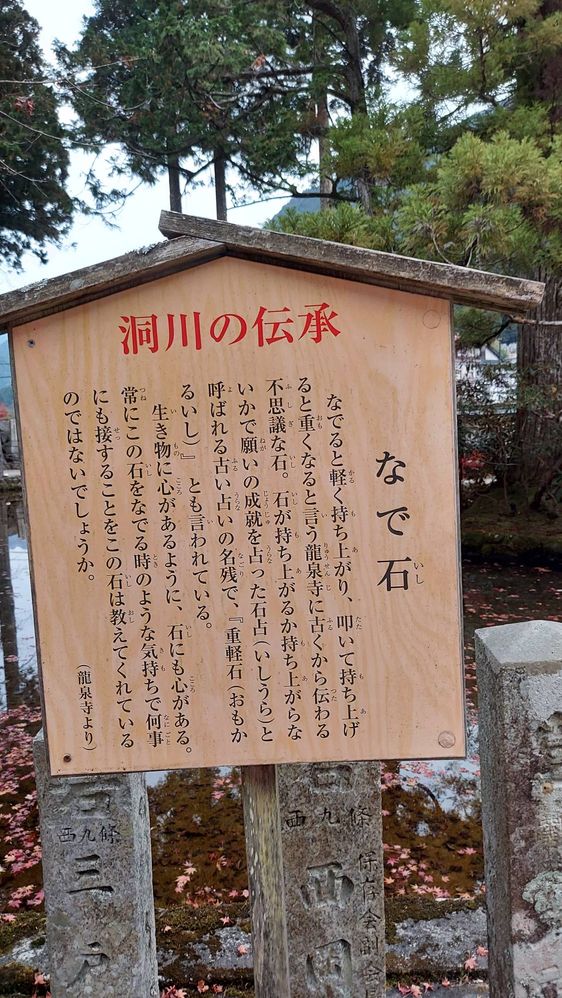 洞川の伝承
なで石
なでると軽く持ち上がり、叩いて持ち上げ
ると重くなると言う龍泉寺に古くから伝わる
不思議な石。石が持ち上がるか持ち上がらな
いかで願いの成就を占った石占（いしうら）と
呼ばれる古い占いの名残で、『重軽石（おもか
るいし）』とも言われている。
生き物に心があるように、石にも心がある。
常にこの石をなでる時のような気持ちで何事
にも接することをこの石は教えてくれている
のではないでしょうか。
（龍泉寺より）
西九條
三戸
西九條
西岡
保存会副会